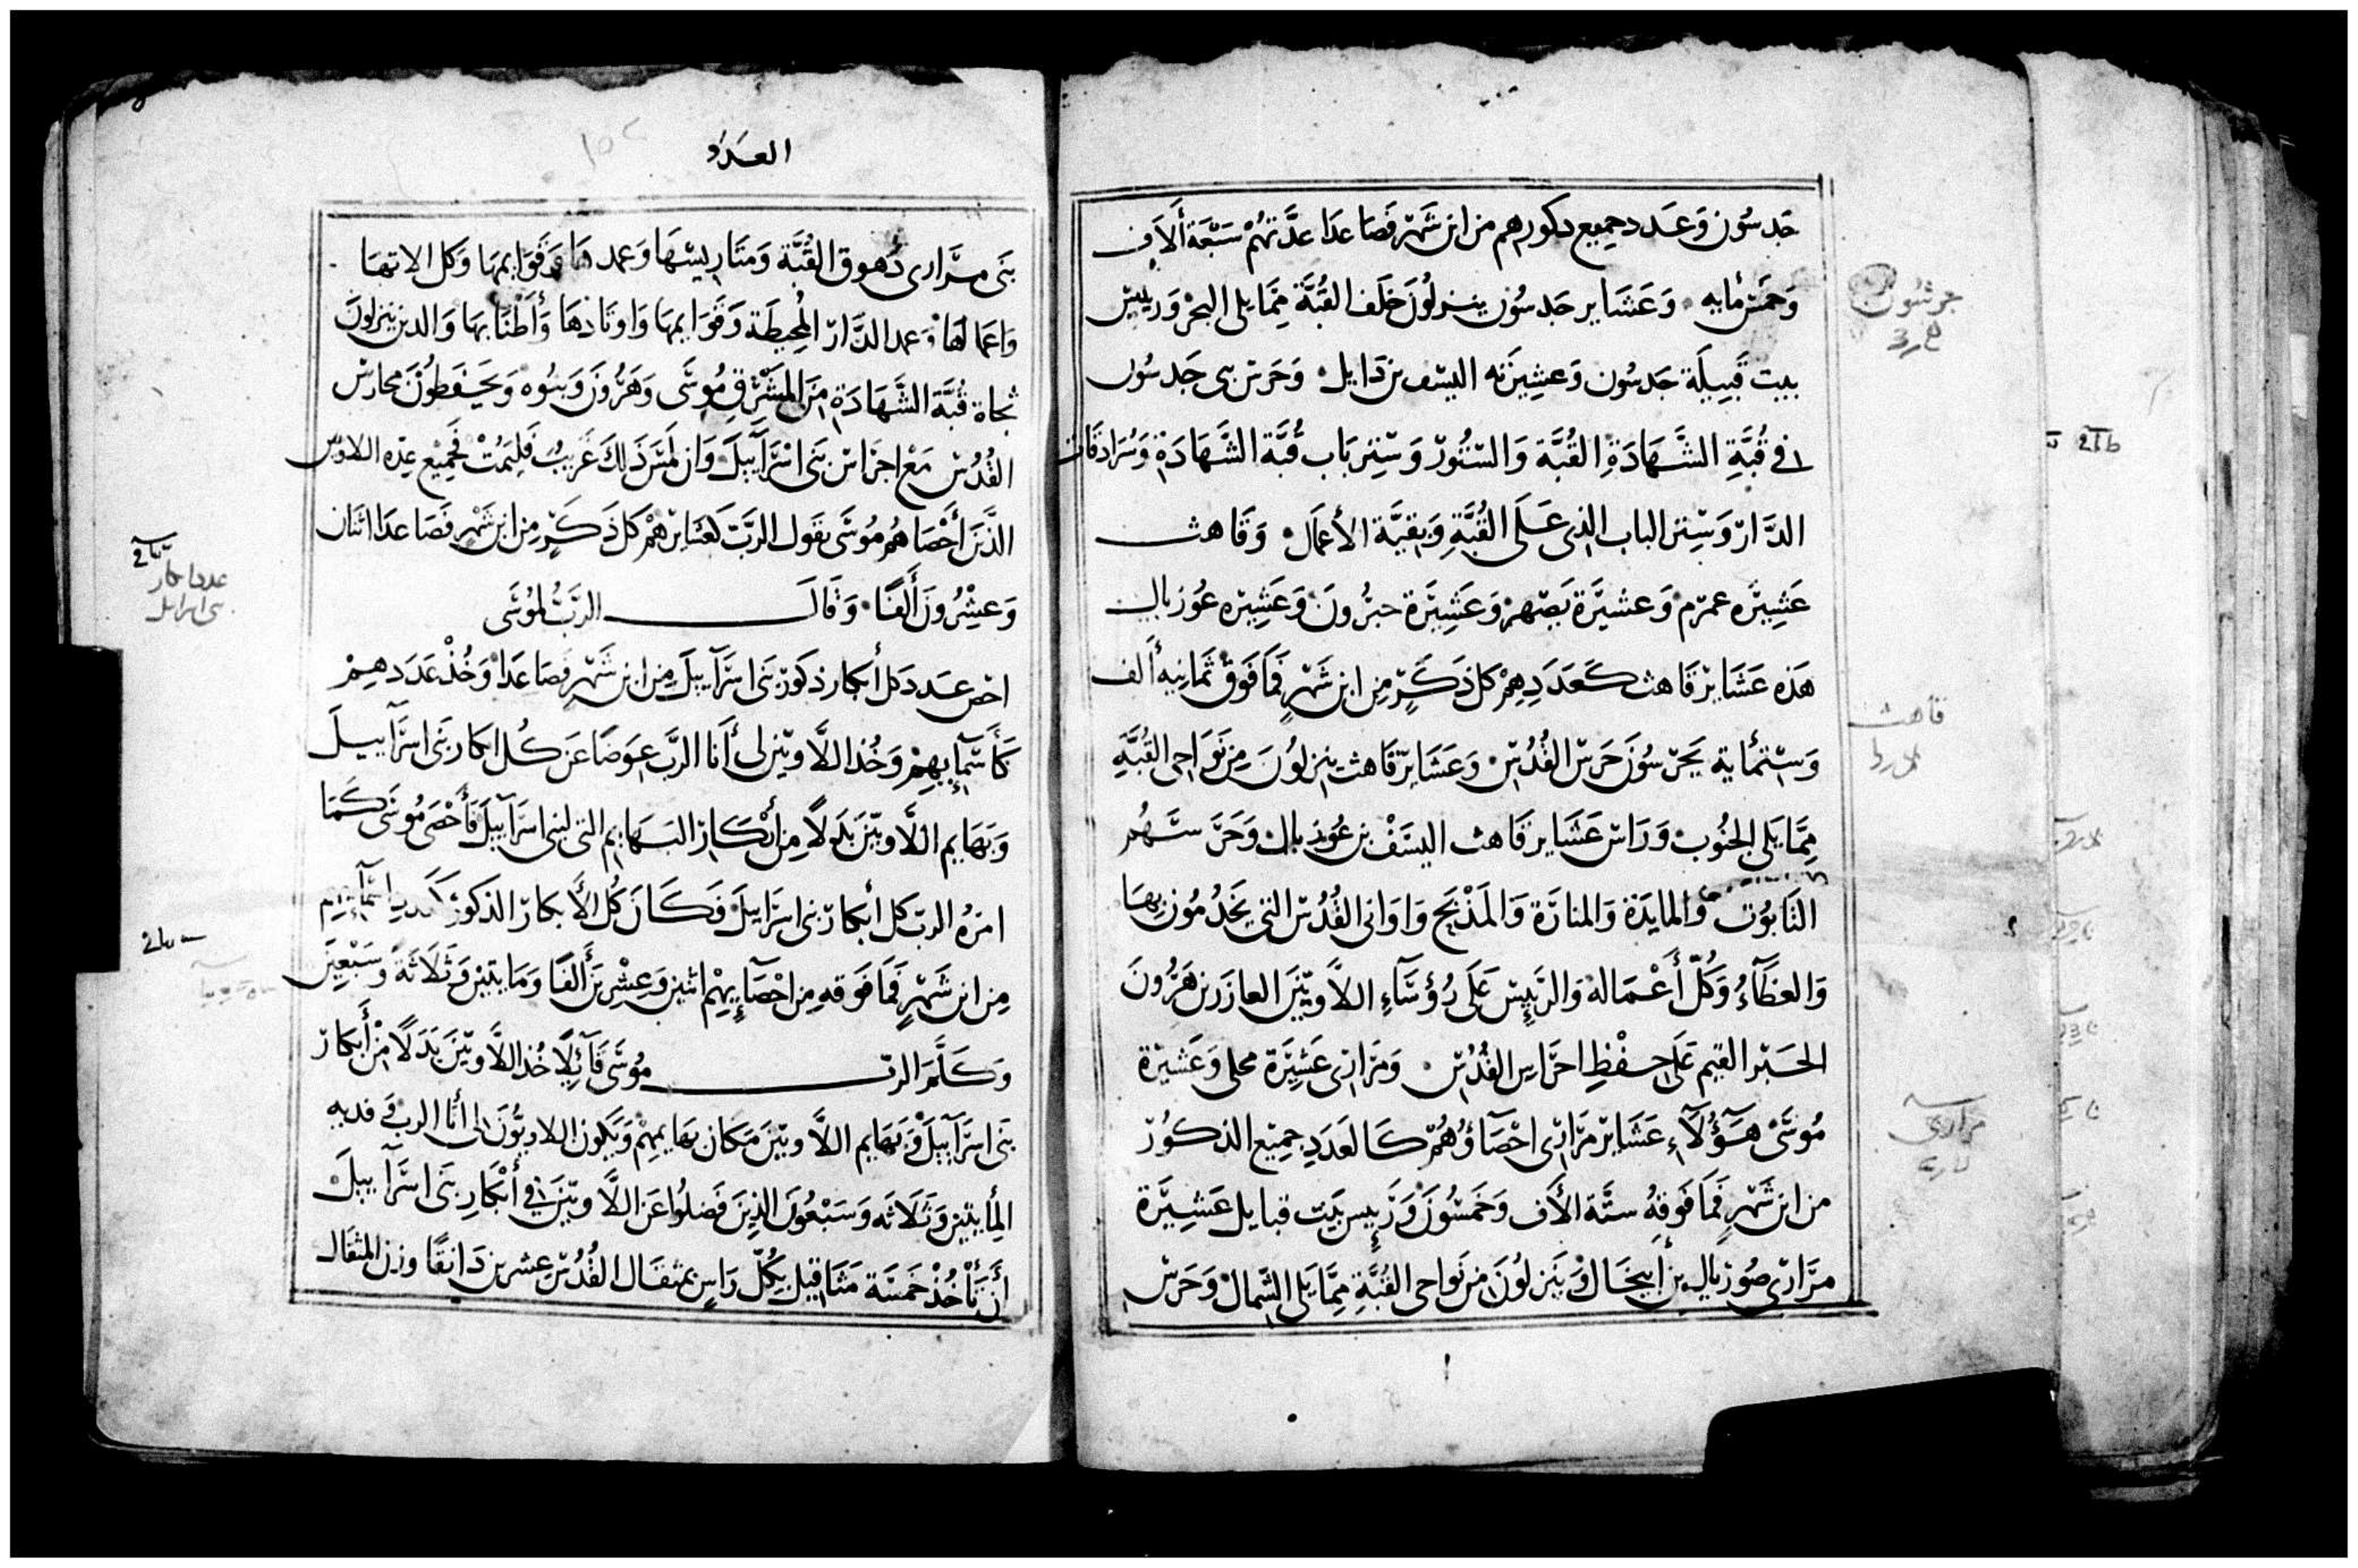 جدسون وَعَدد جميع دكورهم من ابن شَهْر فَصَاعدًا عدَّتهُمْ سَبْعَة ألاَف
وَخمسَ مأيه وَعَشَاير جَدسُون ينزلُونَ خلَف القُبَّة مِمَّا يلى البحْر وَرييسْ
بيت قَبِيلَة جَدسُون وَعشِيرَته اليسَف بن دَايل وَحَرس بنى جَدسُون
فى قُبَّةِ الشَّهَادَةِ القُبَّة وَالسْتُورْ وَسِتر بَاب قُبَّة الشَّهَادَة وَسُرَادقَات
الدَّارْ وَسِتر الباب الذى عَلَى القُبَّةِ وَبقيَّة الأعمَال وَقَاهث
عَشِيرَه عمرَم وَعشيرَة يَصْهرْ وَعَشِيرَة حبرُونَ وَعَشِيرَه عوُزيال
هَذه عَشَايرْ قَاهث كَعَدَدِهِمْ كل ذَكَرٍ مِن ابن شَهْرٍ فَمَا فَوَقْ ثمَانِيهَ ألف
وَستْمأية يَحرْسُونَ حَرسَ القُدُسْ وَعَشَايرْ قَاهث ينزلوُنَ مِن نَوَاحى القُبَّةِ
مِمَّا يَلى الجنُوب وَرَاسْ عَشَاير قَاهث اليسَفْ بن عُوزيال وَحَرَ سَتهُم
التَابوُت وَالمايَدَة وَالمنارَة وَالمَذْبَح وَاوَانى القُدُس التى يَخدُمُون بهَا
وَالغطَآءُ وَكُلّ أَعْمَاله وَالرَّيِيسْ عَلَى رُؤسَآءِ اللاَّويّينَ العازَر بن هَرُونَ
الحَبْر القيم عَلَى حِفْظِ احرَّاسِ القُدُسْ وَمَرَارى عَشِيرَة محلى وَعَشيرَة
مُوسَىْ هَؤُلآءِ عَشَايرْ مَرَارْى احْصَآؤُهُمْ كَالعَدَدِ جمِيْع الذكوُرْ
من ابن شَهْرٍ فَمَا فَوقِهُ ستَّة الأَف وَخَمسُونَ وَرَيِيس بَيَت قبايل عَشِيرَة
مرَّارْى صُوريال بن أبيخَال وَيَنزلوُنَ من نَواحى القُبَّةِ مِمَّا يَلى الشَمالْ وَحَرَسْ
جرشون
قاهث
مرارى
العدَد
بَنى مرَّارى دُهوق القُبَّة وَمتَاريسْهَا وَعمدهَا وَقَوَايمهَا وَكل الاتهَا
وَاعمالهَا وَعمد الدَّارْ المُحِيطَة وَقوَايمهَا وَاوتَادهَا وَأطْنَابهَا وَالدين ينزلونَ
تجاة قُبَّة الشَّهَادَةِ مِنَ المشَرْق مُوسَى وَهَرُّونَ وَبنوُه وَيحَفَظونَ محارسْ
القُدُسْ مَعْ احرَاسْ بَنى اسْرَآييلَ وَان لَمسَ ذَلِكَ غَريبُ فَليَمُتْ فَجَمِيْع عِدّه اللاويّن
الذَّينَ أَحْصَاهُم مُوسَى بقَول الرَبّ لعشَايرْهمْ كل ذَكَرٍ مِن ابن شَهْرٍ فَصَاعَدا اثنَان
وَعشْرُونَ أَلفًا وَقَالَ الرَبُّ لمُوسَى
احْص عَدد كل أبكار ذكورْ بَنى اسرَآييلَ مِن ابن شَهْرٍ فَصَاعَدًا وَخُذْ عَدَدهِمْ
كَأَسْمآيهِمْ وَخُذ اللاَّويّن لى أَنا الرَبّ عِوَضًا عَن كُل ابكار بَنى اسرَآييلَ
وَبَهَايم اللاَّويّينَ بَدَلاً مِن أبْكَارْ البَهَايم التى لبنى اسرَآييلَ فَأَحْصَى مُوسَى كَمَا
امرَهُ الربّ كل أبكارْ بنى اسرَاييلَ فَكَانَ كُل الأَبكارْ الذكورْ
مِن ابن شَهْرٍ فَمَا فَوقهِ مِن احْصَآيِهِمْ اثنين وَعِشْرينَ أَلفًا وَمَايتيْن وَثَلاَثَةً وَسَبْعِيَن
وَكَلَّمَ الربّ مُوسَى قَآئِلًا خُذ اللاَّويّينَ بَدَلًا مِنْ أَبكارْ
بَنى اسرَآييلَ وَبَهايم اللاَّويّينَ مَكَان بَهَايمِهِمْ وَيَكون اللاويُّونَ لى أَنا الرب وَفديه
المأيتيْن وَثَلاَثَه وَسَبْعُونَ الذِينَ فَضلوُا عَن اللاَّويّينَ فى أبْكارِ بَنى اسرَآييلَ
أن تَأخُذْ خَمسَة مَثَاقيل بكُلّ رَاسٍ بمثقَال القُدُسْ عشرين دَانقًا وزن المثقَال
عدد ابكار
بنى اسرايل